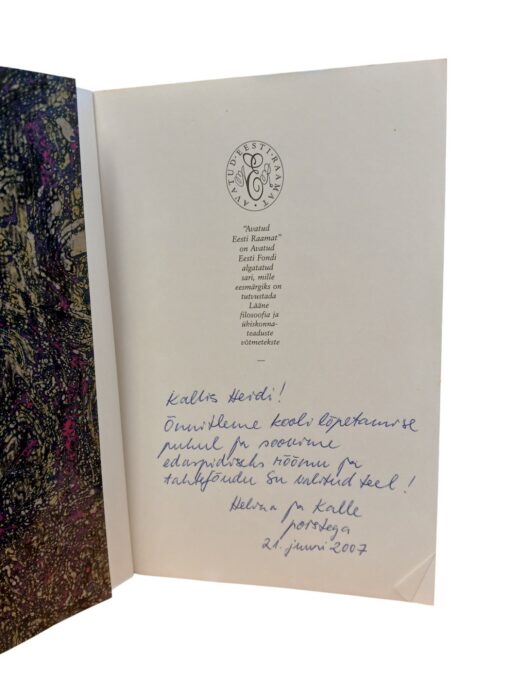 AVATUD · EESTI · RAAMAT ·
"Avatud
Eesti Raamat"
on Avatud
Eesti Fondi
algatatud
sari, mille
eesmärgiks on
tutvustada
Lääne
filosoofia ja
ühiskonna-
teaduste
võtmetekste
—
Kallis Heidi!
Õnnitleme kooli lõpetamise
puhul ja soovime
edaspidiseks rõõmu ja
tahtejõudu Su valitud teel!
Helina ja Kalle
poistega
21. juuni 2007